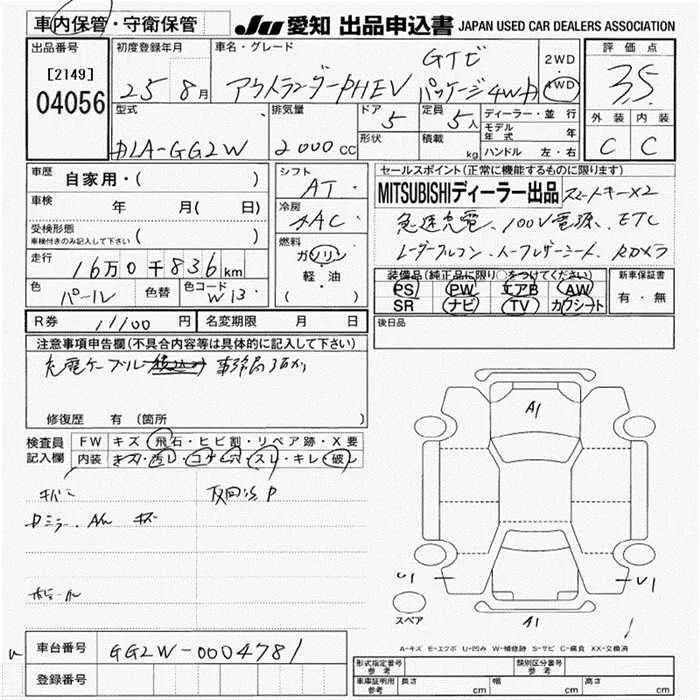 車内保管・守衛保管
JU 愛知 出品申込書 JAPAN USED CAR DEALERS ASSOCIATION
出品番号
[2149]
04056
初度登録年月
25 8月
車名・グレード
アウトランダーPHEV
Gナビ
パッケージ 4WD
2WD
4WD
評価点
3.5
外装 内装
C C
型式
DLA-GG2W
排気量
2000cc
ドア 5
形状
定員 5人
積載 kg
ディーラー・並行
モデル年式 年
ハンドル 左・右
車歴 自家用・( )
車検 年 月( 日)
受検形態
車検付きのみ記入して下さい ( )
走行 16万0千836km
色 パール 色替 色コード W13
シフト AT
冷房 AAC
燃料
ガソリン
軽・油
( )
セールスポイント(正常に機能するものに限ります)
MITSUBISHIディーラー出品 スマートキー×2
急速充電、100V電源、ETC
レーダークルコン、
装備品(純正品に限り○をつけてください)
PS PW エアB AW
SR ナビ TV カワシート
新車保証書
有・無
後日品
R券 11100円 名変期限 月 日
注意事項申告欄(不具合内容等は具体的に記入して下さい)
充電ケーブル 事務局
修復歴 有 (箇所 )
検査員記入欄
FW キズ・飛石・ヒビ割・リペア跡・X要
内装 キズ・汚レ・コゲ・穴・スレ・キレ・破レ
キズ
A1
U1 U1
A1
スペア
A-キズ E-エクボ U-凹み W-補修跡 S-サビ C-腐食 XX-交換済
車台番号 GG2W-0004781
登録番号
形式指定番号 参考 類別区分番号 参考
車庫証明用 参考 長さ cm 幅 cm 高さ cm